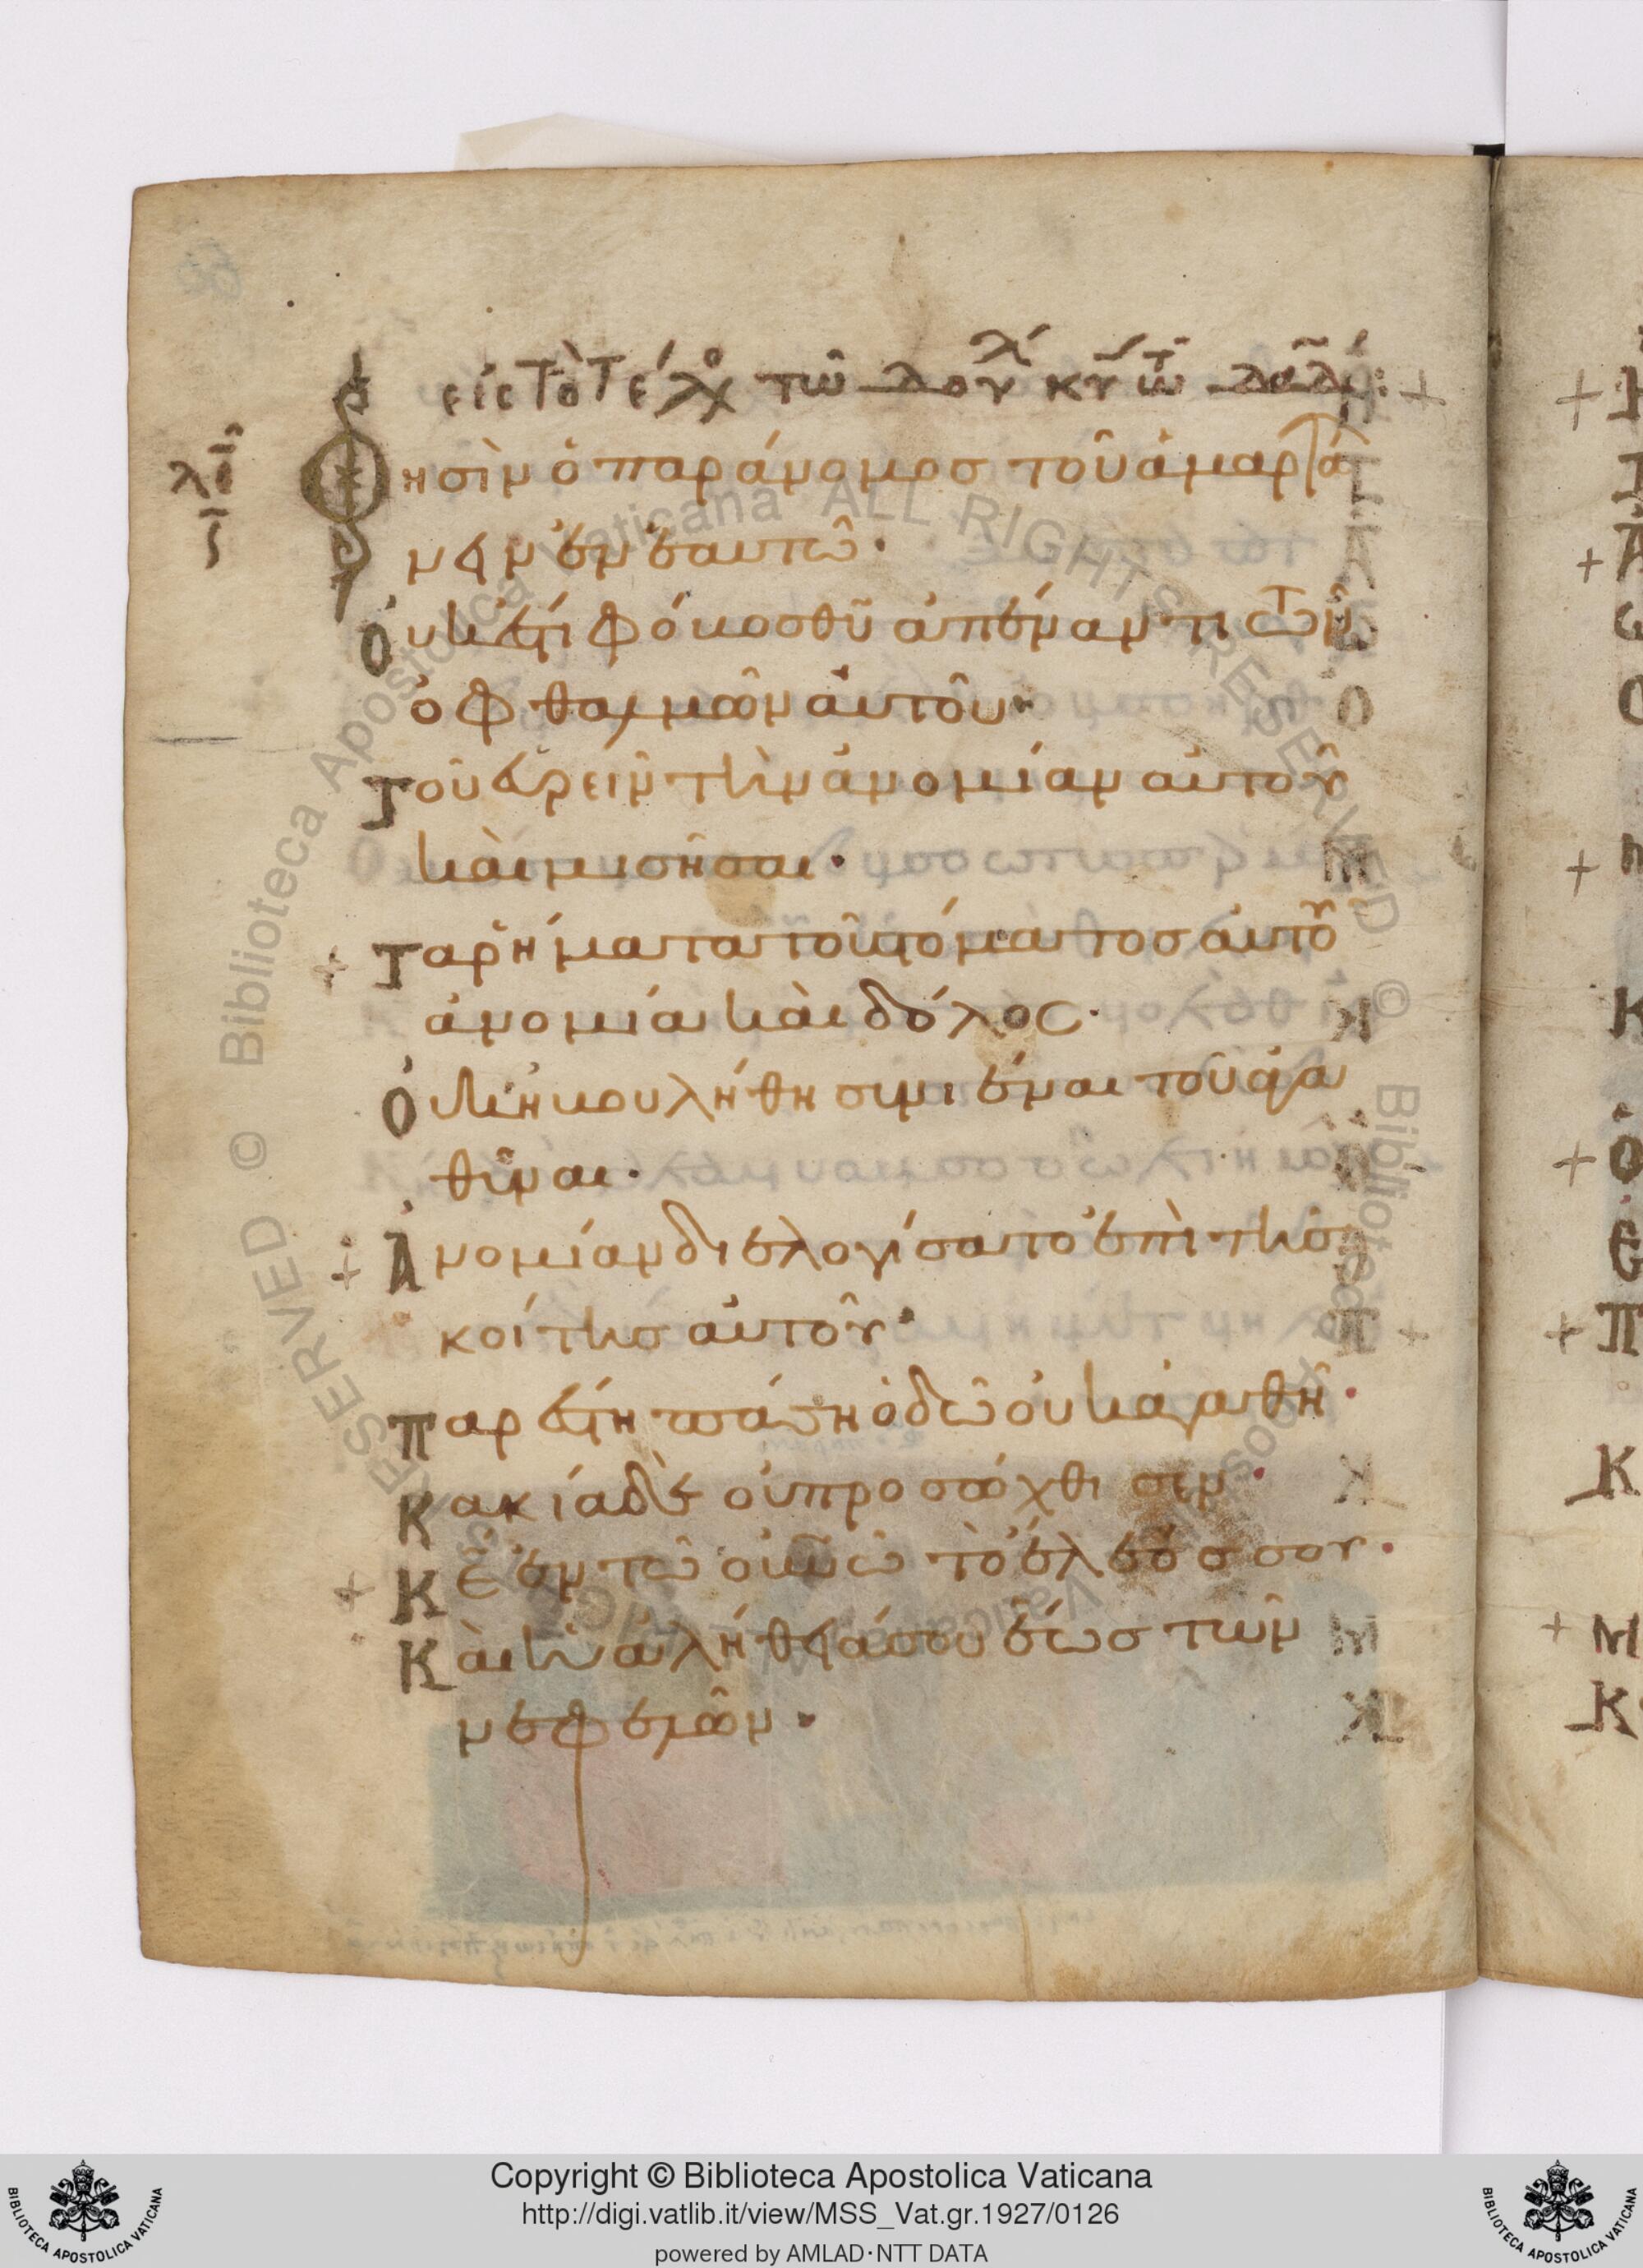 εἰς τὸ τέλος τῶ δούλ κυ τῶ δαδ:
λε
Φησὶν ὁ παράνομος τοῦ ἁμαρτά
νειν ἐν ἑαυτῶ·
Οὐκ ἔστι φόβος θυ ἀπέναντι τῶν
ὀφθαλμῶν αὐτοῦ·
Τοῦ εὑρεῖν τὴν ἀνομίαν αὐτοῦ
καὶ μισῆσαι·
Τα ῥήματα τοῦ στόματος αὐτοῦ
ἀνομία καὶ δόλος·
Οὐκ ἠβουλήθη συνιέναι τοῦ ἀγα
θῦναι·
Ἀνομίαν διελογίσατο ἐπὶ τῆς
κοίτης αὐτοῦ·
Παρέστη πάση ὁδῶ οὐκ ἀγαθῆ·
Κακία δὲ οὐ προσώχθισεν·
Κε ἐν τῶ οὐνῶ τὸ ἔλεός σου·
Καὶ ἡ ἀλήθειά σου ἕως τῶν
νεφελῶν·
Copyright © Biblioteca Apostolica Vaticana
http://digi.vatlib.it/view/MSS_Vat.gr.1927/0126
powered by AMLAD·NTT DATA
BIBLIOTECA APOSTOLICA VATICANA
BIBLIOTECA APOSTOLICA VATICANA